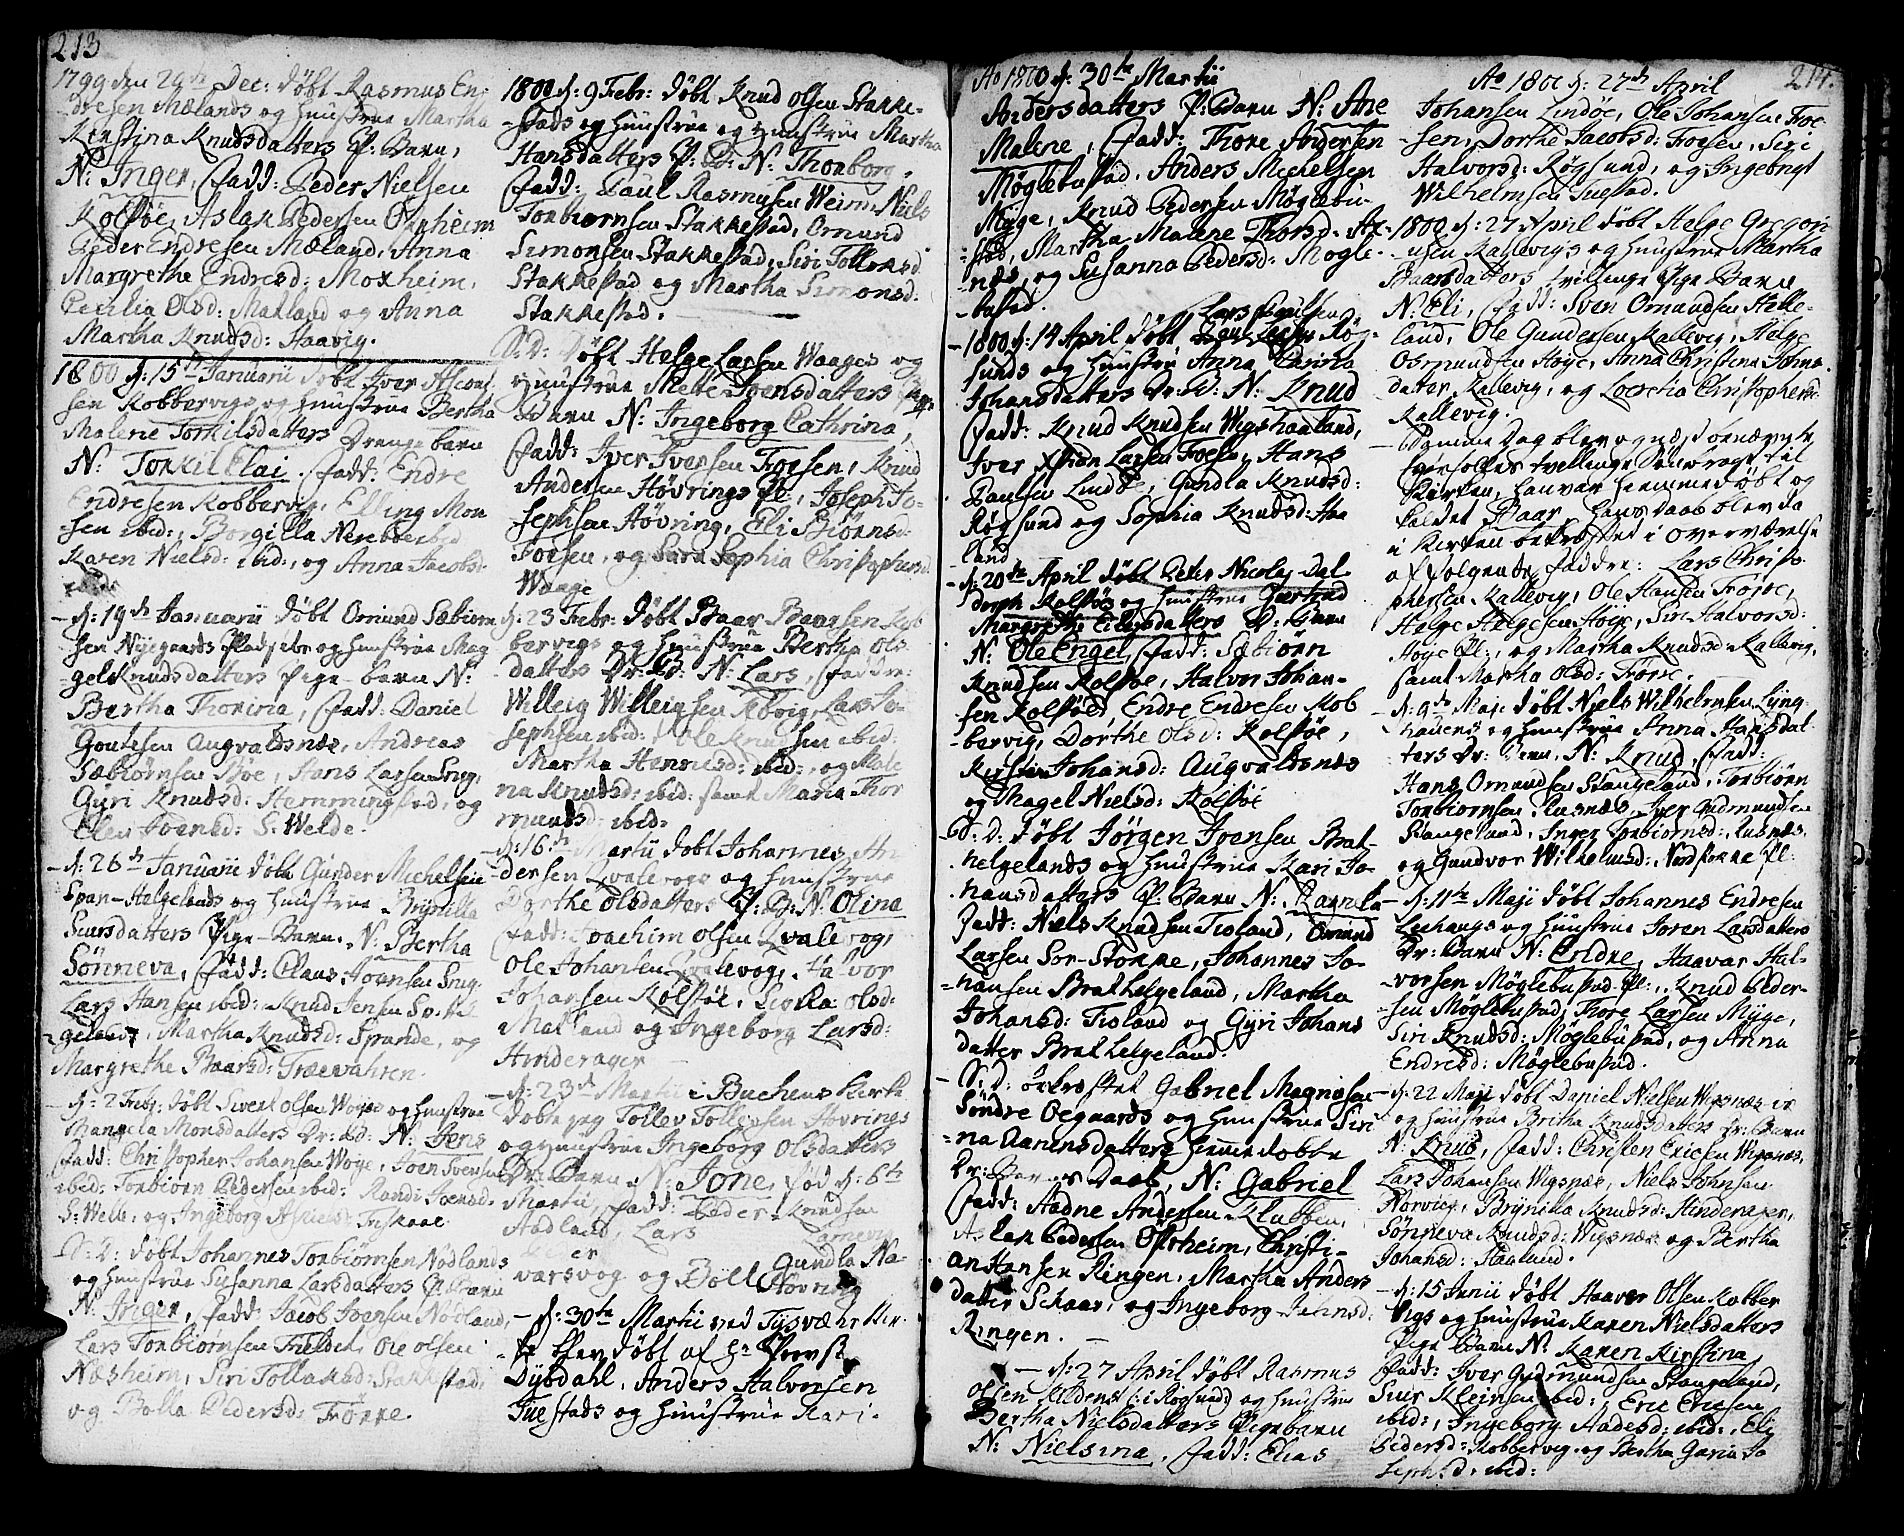 213
1799 den 29de Dec: døbt Rasmus En-
dresen Mælands og Huustrue Martha
Kirstina Knudsdatters P: Barn,
N: Inger, Fadd: Peder Nielsen
Kolstøe, Aslak Pedersen Østrheim
Peder Endresen Mæland, Anna
Margrethe Endresd: Moxheim,
Cecilia Olsd: Makland og Anna
Martha Knudsd: Haavig.
1800 d: 15de Januarii døbt Iver
sen Kobbervigs og Huustrue Bertha
Malene Torkilsdatters Drenge barn
N: Torkil Elai. Fadd: Endre
Endresen Kobbervig, Elling Mon
sen ibid:, Borgilla
Karen Nielsd: ibid:, og Anna Jacobs:
- d: 19de Januarii døbt Omund Sæbiorn
sen Nyegaards Pladsebr og Huustrue Mag
gele Knudsdatters Pige-barn N:
Bertha Thorina, Fadd: Daniel
Goutesen Augvaldsnæs, Andreas
Sæbiørnsen Bøe, Hans Larsen Snug,
Gyri Knudsd: Hemmingstad, og
Elen Joensd: S: Welde.
- d: 26de Januarii døbt Gunder Michelsen
Span-Helgelands og Huustrue Brynilla
Siursdatters Pige-Barn. N: Bertha
Sønneva, Fadd: Claus Joensen Snug
Lars Hansen ibid: Knud Jensen
geland, Martha Knudsd: Spande, og
Margrethe Baarsd: Trævahren.
- d: 2 Febr: døbt Sivert Olsen Woges og Huustrue
Mansela Monsdatters Dr: Bd: N: Jens
Fadd: Christopher Johansen Woge, Joen Svensen
ibid: Torbiørn Pedersen ibid: Randi Joensd:
S: Weld, og Ingeborg
S: D: døbt Johannes Torbiornsen Nødlands
og Huustrue Susanna Larsdatters P: Barn
N: Inger, Fadd: Jacob Joensen Nødland,
Lars Torbiornsen Ole Olsen
Næsheim, Siri Tollaksd: Stakkestad,
og Bolla Pedersd: Tørre.
1800 d: 9 Febr: døbt Knud Olsen Stakke-
stads og Huustrue og Huustrue Martha
Hansdatters P: B: N: Thorborg.
Fadd: Paul Rasmusen Weim, Niels
Torbiornsen Stakkestad, Omund
Simonsen Stakkestad, Siri Tollaksd:
Stakkestad og Martha Simonsd:
Stakkestad.
S: D: døbt Helge Larsen Waages og
Huustrue Mette Joensdatters Pige
Barn N: Ingeborg Cathrina,
Fadd: Iver Iversen Foesen, Knud
Andersen Høvrings Pl:, Joseph Jo-
sephsen Høvring, Eli Biørnsd:
Foesen, og Sara Sophia Christophersd
Waage
d: 23 Febr: døbt Baar Baarsen Kob
bervigs og Huustrue Bertha Ols
datters Dr: Bd: N: Lars, Fadder:
Willeig Willeigsen Kobvig, Lars Jo-
sephsen ibid: Ole Knudsen ibid:
Martha Hansd: ibid:, og Male
na Knudsd: ibid: samt Maria Thor
mundsd: ibid:
d: 16de Martii døbt Johannes An
dersen Qvalevogs og Huustrue
Dorthe Olsdatters P: B: N: Olina
Fadd: Joachim Olsen Qvalevog,
Ole Johansen Qvalevog, Halvor
Johansen Kolstøe, Olsd:
Makland og Ingeborg Larsd:
Hinderager
- d: 23de Martii i Buchens Kirke
døbte jeg Tollev Tollevsen Høvrings
og Huustrue Ingeborg Olsdatters
Dr: Barn N: Jone, fød d: 6te
Martii, Fadd: Peder Knudsen
Aadland, Lars
varsvog og Boll Gundla Na
Høvring
- d: 30te Martii ved Tysvæhr Kir
ke blev døbt af Hr Provst
Dybdahl, Anders Halvorsen
Tuestads og Huustrue Kari.
Ao 1800 d: 30te Martii
Andersdatters P: Barn N: Ane
Malene, Fadd: Thore Andersen
Møglebustad, Anders Michelsen
Myge, Knud Pedersen Møglebu-
stad, Martha Malene Thorsd: Ax-
næs, og Susanna Pedersd: Møgle-
bustad.
Lars Paulsen
- 1800 d: 14 April døbt Røg-
sunds og Huustrue Anna Carina
Johansdatters Dr: B: N: Knud
Fadd: Knud Knudsen Wigshaaland,
Iver Larsen Foesen, Hans
Paulsen Lindøe, Gundla Knudsd:
Røgsund og Sophia Knudsd: Haa
land
- d: 20de April døbt Peter Nicolay Dal
dorph Kolstøes og Huustrue Giertrud
Margrethe datters D: Barn
N: Ole Engel, Fadd: Sæbiørn
Knudsen Kolstøe, Halvor Johan-
sen Kolstøe, Endre Endresen Kob
bervig, Dorthe Olsd: Kolstøe,
Kirsten Johansd: Augvaldsnæs
og Magel Nielsd: Kolstøe
Ed: D: døbt Jørgen Joensen Brat-
helgelands og Huustrue Kari Jo-
hansdatters P: Barn N: Ragnila
Fadd: Niels Knudsen Tisland, Omund
Larsen Sor-Stokke, Johannes Jo-
hansen Brathelgeland, Martha
Johansd: Tisland og Gyri Johans
datter Brathelgeland.
- S: D:ørkæstet Gabriel Magnesen
Søndre Oegaards og Huustrue Siri
na Aanensdatters hiemmedøbte
Dr: Barnes Daab, N: Gabriel
Fadd: Aadne Andersen Klubben,
Aslak Pedersen Østrheim, Christi-
an Hansen Ringen, Martha Anders
datter Schaar, og Ingeborg
Ringen.
- d: 27 April døbt Rasmus
Olsen i Røgsund og Huustrue
Bertha Nielsdatters Pigebarn
N: Nielsina, Fadd: Elias
214.
Ao 1800 d: 27de April
Johansen Lindøe, Ole Johansen Foe-
sen, Dorthe Jacobsd: Foesen, Siri
Halvorsd: Røgsund, og Ingebrigt
Wilhelmsen Tuestad.
1800 d: 27 April døbt Helge Gregori
usen Kallevigs og Huustrue Martha
Baarsdatters tvillinge Pige Barn
N: Eli, Fadd: Sven Omundsen Helle-
land, Ole Gundersen Kallevig, Helge
Osmundsen Høye, Anna Christina Johns
datter Kallevig, og Lucretia Christophersd:
Kallevig.
- Samme Dag blev og næst ovenævnte
Forældres tvellinge Søn bragt til
Kirken, han var hiemmedøbt og
kaldet Baar. Hans daab blev da
i Kirken ørkæstet i overværelse
af følgende Fadder: Lars Christo-
phersen Kallevig, Ole Hansen Trøje,
Helge Helgesen Høye, Siri Halvorsd:
Høye Pl:, og Martha Knudsd Kallevig,
samt Martha Olsd: Tørre.
- d: 9de Maji døbt Niels Wilhelmsen Lyng-
hauens og Huustrue Anna Hansdat
ters Dr: Barn, N: Knud, Fadd:
Hans Omundsen Stangeland, Torbiørn
Torbiornsen Rusnæs, Iver Gudmundsen
Stangeland, Inger Torbiornsd: Rusnæs
og Gundvor Wilhelmsd: Nordstokke Pl:
- d: 11te Maji døbt Johannes Endresen
Leehougs og Huustrue Joren Larsdatters
Dr: Barn N: Endre, Haavar Hal-
vorsen Møglebustad Pl:, Knud Peder-
sen Møglebustad, Thore Larsen Myge,
Siri Knudsd: Møglebustad, og Anna
Endresd: Møglebustad.
- d: 22 Maji døbt Daniel Nielsen Wigsnæs
og Huustrue Britha Knudsdatters Dr: Barn
N: Knud, Fadd: Christen Ericsen Wigsnæs,
Lars Johansen Wigsnæs, Niels Johnsen
Norvig, Brynilla Knudsd: Hinderager,
Sønneva Knudsd: Wigsnæs og Bertha
Johansd: Haaland.
- d: 15 Junii døbt Haaver Olsen Kobber
vigs og Huustrue Karen Nielsdatters
Pige Barn N: Karen Kirstina,
Fadd: Iver Gudmundsen Stangeland,
Siur Kleinsen ibid:, Eric Ericsen
ibid:, Ingeborg Aadesd: ibid:, Eli
Pedersd: Kobbervig, og Bertha Garia Jo
sephsd: ibid: